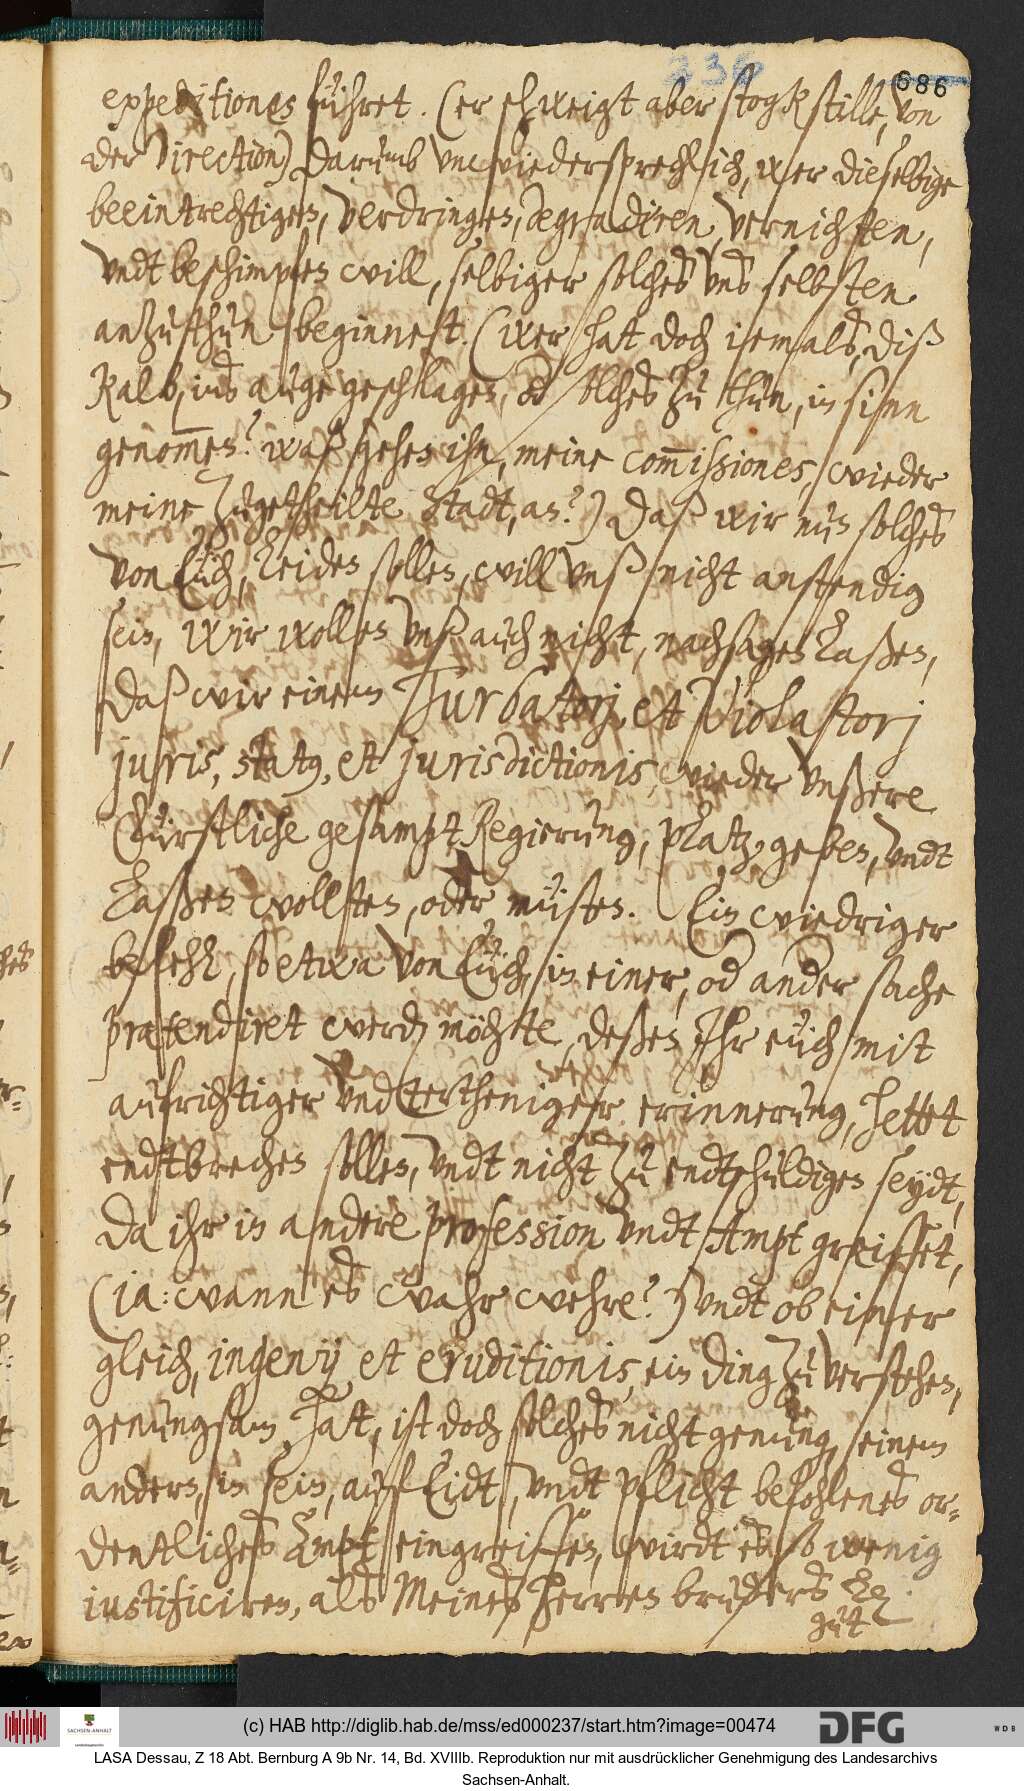 236
686
expeditiones führet. (er schweigt aber stogkstille, von
der Direction) Darumb unwiedersprechlich, wer dieselbige
beeintrechtigen, verdringen, degradiren, vernichten,
undt beschimpfen will, selbiger solches uns selbsten
anzuthun beginnet. (wer hat doch iemals, diß
Kalb, ins auge geschlagen, od solches zu thun, in sinn
genom̄en? waß gehen ihn, meine com̄issiones, wieder
meine Zugetheilte Stadt, an?) Daß wir nun solches
von Euch, Leiden sollen, will unß nicht anstendig
sein, Wir wollen unß auch nicht, nachsagen Laßen,
Daß wir einem Turbatorj, et Violatorj
juris, status, et jurisdictionis, wieder unßere
Fürstliche gesampt Regierung, Platz, geben, undt
Laßen wollten, oder müsten. Ein wiedriger
befehl, so etwa von Euch, in einer, od ander sache
prætendiret werden möchte, deßen Ihr euch mit
aufrichtiger undterthenigster erinnerung, hettet
endtbrechen sollen, undt nicht zu endtschuldigen seydt,
Da ihr in andere profession undt Ampt greiffet,
(ja: wann es wahr wehre?) undt ob einer
gleich, ingenij et eruditionis, ein ding zu verstehen,
genungsam hat, ist doch solches nicht genung, einem
andern, in sein, auf Eidt, undt pflicht befohlenes or-
dentliches Ampt eingreiffen, wirdt es so wenig
iustificiren, als Meines herren bruders Ld.
gut
(c) HAB http://diglib.hab.de/mss/ed000237/start.htm?image=00474
SACHSEN-ANHALT
DFG
WDB
LASA Dessau, Z 18 Abt. Bernburg A 9b Nr. 14, Bd. XVIIIb. Reproduktion nur mit ausdrücklicher Genehmigung des Landesarchivs
Sachsen-Anhalt.